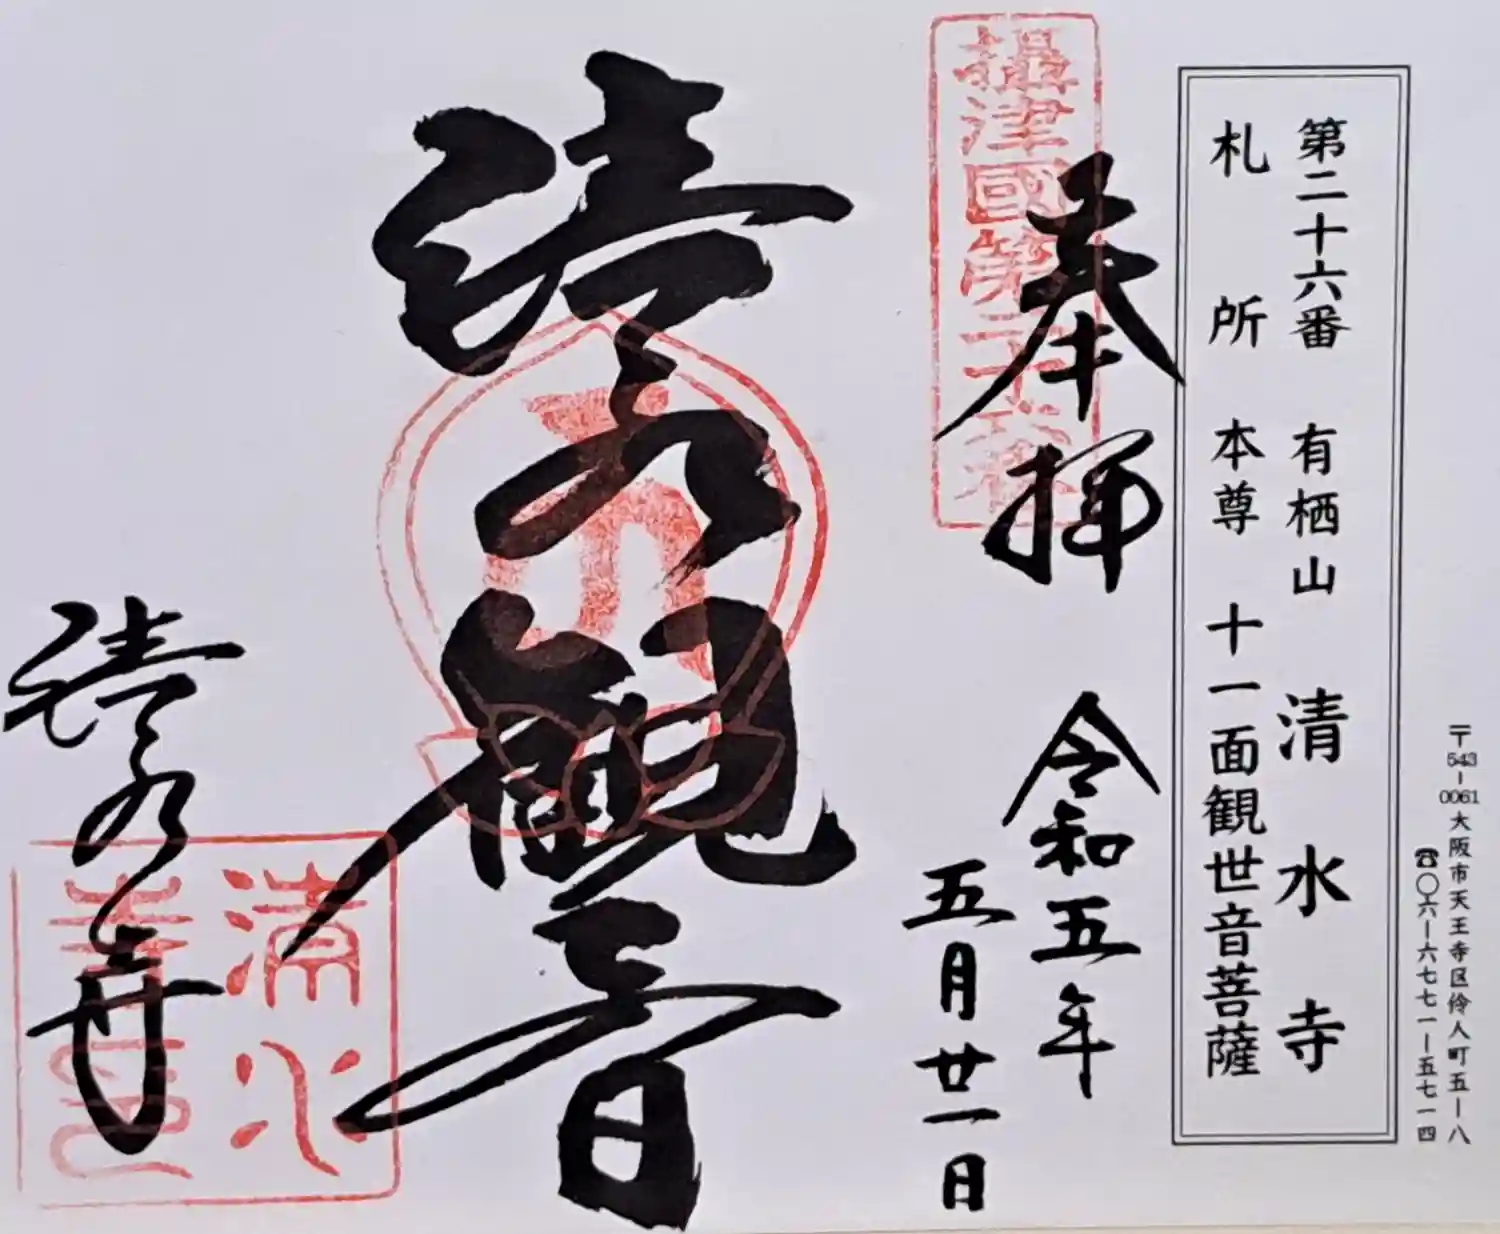 〒543-0061大阪市天王寺区伶人町五ー八
☎〇六ー六七七一ー五七一四
第二十六番 有栖山 清水寺
札所 本尊 十一面観世音菩薩
奉拝
摂津國第二十六番
令和五年
五月廿一日
清水観音
清水寺
清水寺印